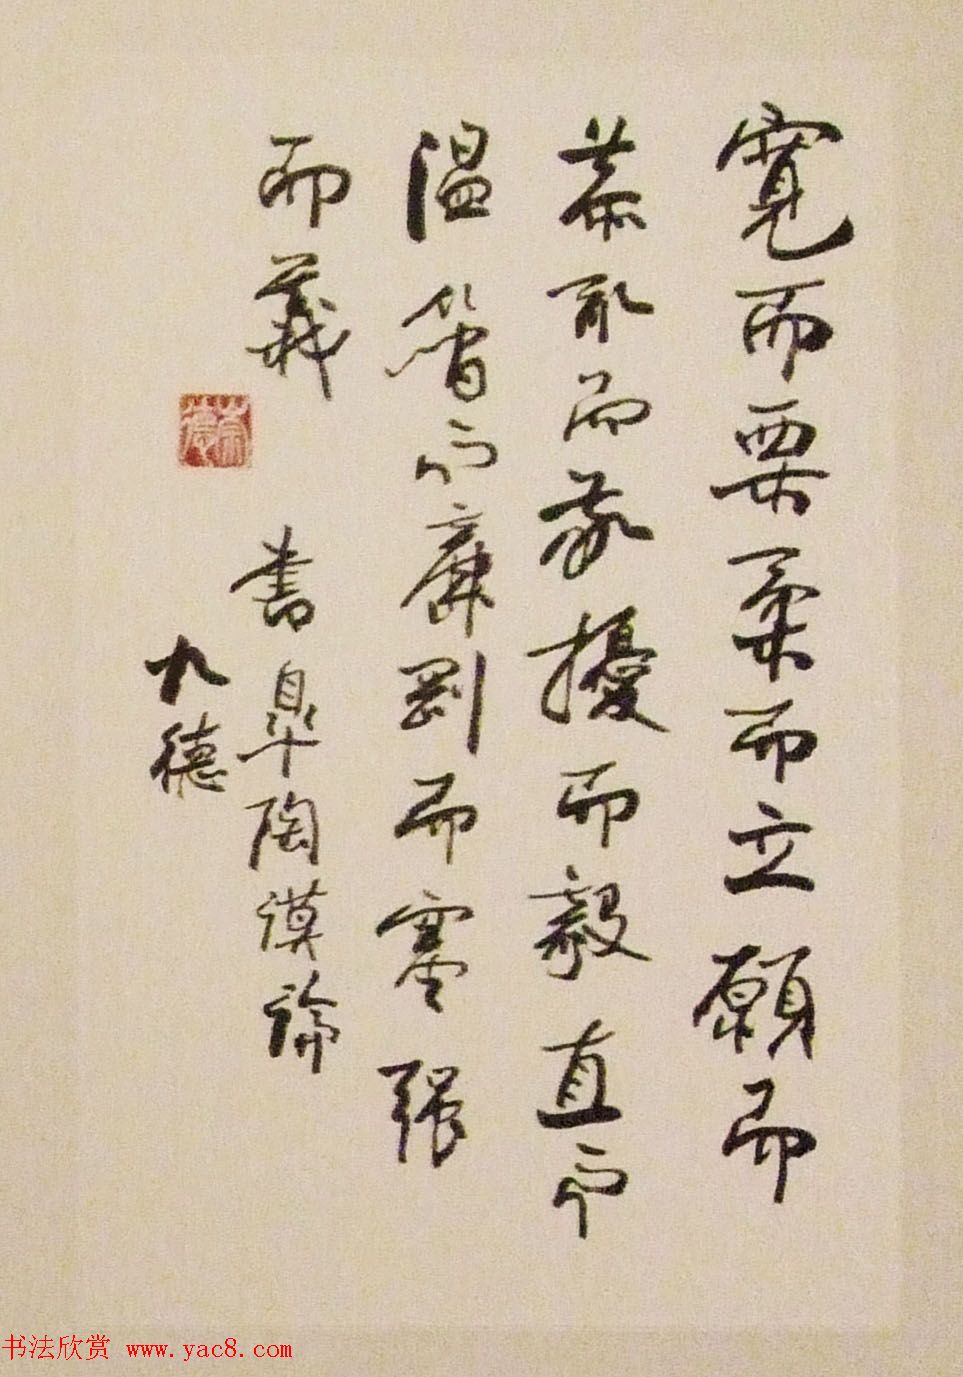 寬而栗柔而立願而
恭而敬擾而毅直而
溫簡而廉剛而塞彊
而義 書皋陶謨論
九德
书法欣赏 www.yac8.com